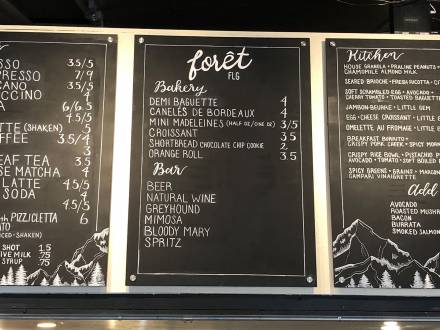 SSO 3.5/5
PRESSO 7/9
CANO 3.5/5
UCCINO 4
6/6.5
4.5/5
TTE (SHAKEN) 5
FFEE 3.5/4
3
EAF TEA 3.5
SE MATCHA 4
LATTE 4.5/5
SODA 4
4.5/5
PIZZICLETTA 6
SHOT 1.5
IVE MILK .75
SYRUP .75
forêt
FLG
Bakery
DEMI BAGUETTE 4
CANELÉS DE BORDEAUX 4
MINI MADELEINES (HALF DZ/ONE DZ) 3/5
CROISSANT 3.5
SHORTBREAD CHOCOLATE CHIP COOKIE 2
ORANGE ROLL 3.5
Bar
BEER
NATURAL WINE
GREYHOUND
MIMOSA
BLOODY MARY
SPRITZ
Kitchen
HOUSE GRANOLA • PRALINE PEANUTS
CHAMOMILE ALMOND MILK
SEARED BRIOCHE • FRESH RICOTTA
SOFT SCRAMBLED EGG • AVOCADO
CHERRY TOMATO • TOASTED BAGUETT
JAMBON-BEURRE • LITTLE GEM
EGG • CHEESE CROISSANT • LITTLE
OMELETTE AU FROMAGE • LITTLE
BREAKFAST BURRITO
CRISPY PORK CHEEK • SPICY
CRISPY RICE BOWL • PISTACHIO P
AVOCADO • TOMATO • SOFT BOILED
SPICY GREENS • BRAINS
CAMPARI VINAIGRETTE
Add
AVOCADO
ROASTED MUSH
BACON
BURRATA
SMOKED SALMON